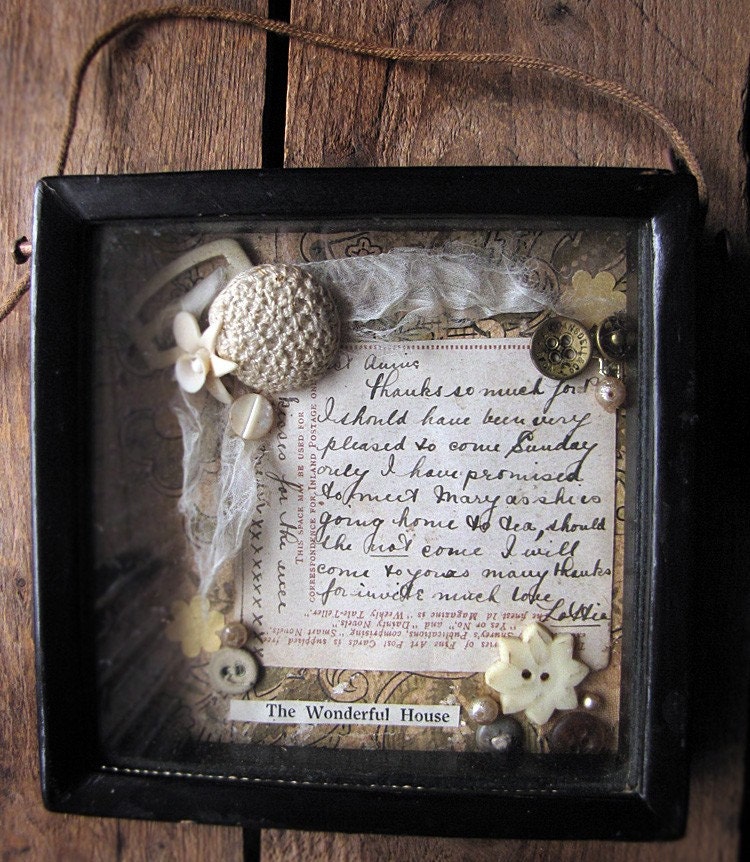 Annie
Thanks so much for
I should have been very
pleased to come Sunday
only I have promised
to meet Mary as she is
going home to tea, should
she not come I will
come to yours many thanks
for invite much love
Lottie
kisses for the ever
xxxxxxx
THIS SPACE MAY BE USED FOR
CORRESPONDENCE FOR INLAND POSTAGE ON
ries of Fine Art Post Cards is supplied free
Shurey's Publications, comprising "Smart Novels,"
"Yes or No," and "Dainty Novels."
The finest 1d Magazine is "Weekly Tale-Teller."
The Wonderful House